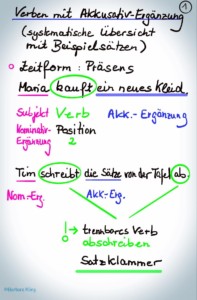 Verben mit Akkusativ-Ergänzung ①
(systematische Übersicht
mit Beispielsätzen)
Zeitform: Präsens
Maria kauft ein neues Kleid.
Subjekt Verb Akk.-Ergänzung
Nominativ- Position
Ergänzung 2
Tim schreibt die Sätze von der Tafel ab.
Nom-Erg. Akk-Erg.
! → trennbares Verb
abschreiben
Satzklammer